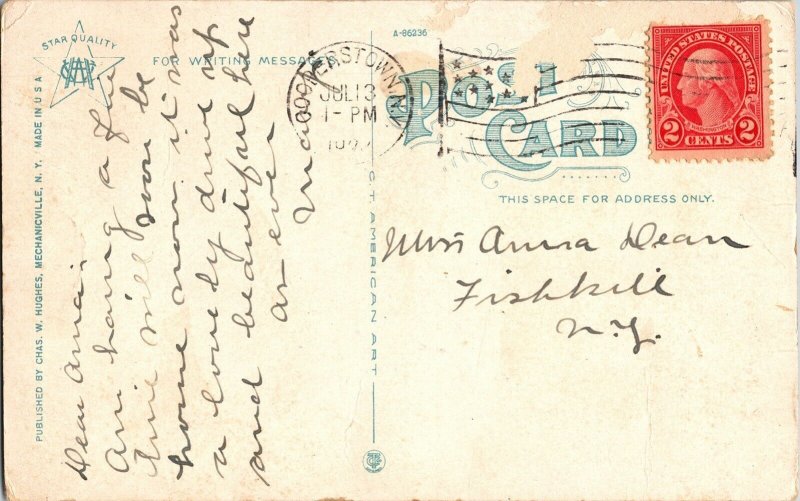 STAR QUALITY
MADE IN U.S.A
PUBLISHED BY CHAS. W. HUGHES, MECHANICVILLE, N. Y.
FOR WRITING MESSAGES
Dear Anna:
Am having a fine
time will soon be
home now it was
a lovely drive up
and beautiful here
as ever
A-86236
COOPERSTOWN N.Y.
JUL 13
1-PM
POST
CARD
UNITED STATES POSTAGE
WASHINGTON
2 CENTS 2
THIS SPACE FOR ADDRESS ONLY.
CT AMERICAN ART
Miss Anna Dean
Fishkill
N.Y.